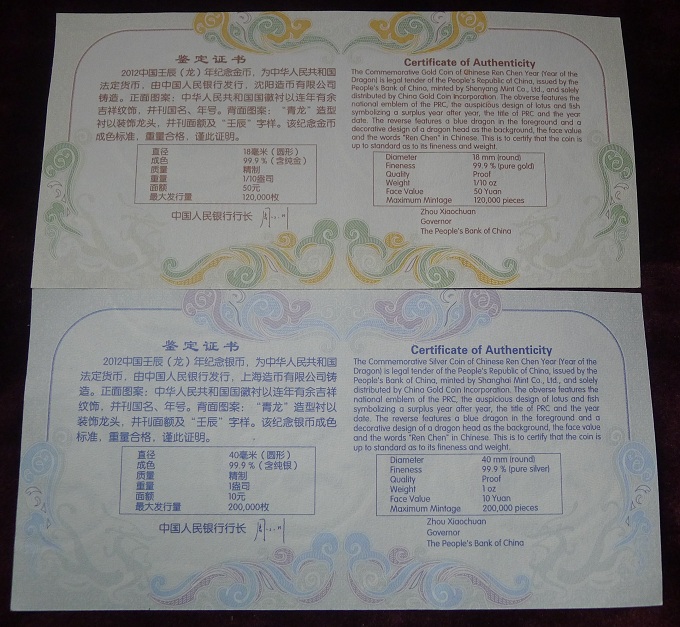 鉴定证书
2012中国壬辰（龙）年纪念金币，为中华人民共和国
法定货币，由中国人民银行发行，沈阳造币有限公司
铸造。正面图案：中华人民共和国国徽衬以连年有余
吉祥纹饰，并刊国名、年号。背面图案：“青龙”造型
衬以装饰龙头，并刊面额及“壬辰”字样。该纪念金币
成色标准，重量合格，谨此证明。
直径 18毫米（圆形）
成色 99.9％（含纯金）
质量 精制
重量 1/10盎司
面额 50元
最大发行量 120,000枚
中国人民银行行长
Certificate of Authenticity
The Commemorative Gold Coin of Chinese Ren Chen Year (Year of the
Dragon) is legal tender of the People's Republic of China, issued by the
People's Bank of China, minted by Shenyang Mint Co., Ltd., and solely
distributed by China Gold Coin Incorporation. The obverse features the
national emblem of the PRC, the auspicious design of lotus and fish
symbolizing a surplus year after year, the title of PRC and the year
date. The reverse features a blue dragon in the foreground and a
decorative design of a dragon head as the background, the face value
and the words "Ren Chen" in Chinese. This is to certify that the coin is
up to standard as to its fineness and weight.
Diameter 18 mm (round)
Fineness 99.9 % (pure gold)
Quality Proof
Weight 1/10 oz
Face Value 50 Yuan
Maximum Mintage 120,000 pieces
Zhou Xiaochuan
Governor
The People's Bank of China
鉴定证书
2012中国壬辰（龙）年纪念银币，为中华人民共和国
法定货币，由中国人民银行发行，上海造币有限公司铸
造。正面图案：中华人民共和国国徽衬以连年有余吉祥
纹饰，并刊国名、年号。背面图案：“青龙”造型衬以
装饰龙头，并刊面额及“壬辰”字样。该纪念银币成色
标准，重量合格，谨此证明。
直径 40毫米（圆形）
成色 99.9％（含纯银）
质量 精制
重量 1盎司
面额 10元
最大发行量 200,000枚
中国人民银行行长
Certificate of Authenticity
The Commemorative Silver Coin of Chinese Ren Chen Year (Year of the
Dragon) is legal tender of the People's Republic of China, issued by the
People's Bank of China, minted by Shanghai Mint Co., Ltd., and solely
distributed by China Gold Coin Incorporation. The obverse features the
national emblem of the PRC, the auspicious design of lotus and fish
symbolizing a surplus year after year, the title of PRC and the year
date. The reverse features a blue dragon in the foreground and a
decorative design of a dragon head as the background, the face value
and the words "Ren Chen" in Chinese. This is to certify that the coin is
up to standard as to its fineness and weight.
Diameter 40 mm (round)
Fineness 99.9 % (pure silver)
Quality Proof
Weight 1 oz
Face Value 10 Yuan
Maximum Mintage 200,000 pieces
Zhou Xiaochuan
Governor
The People's Bank of China